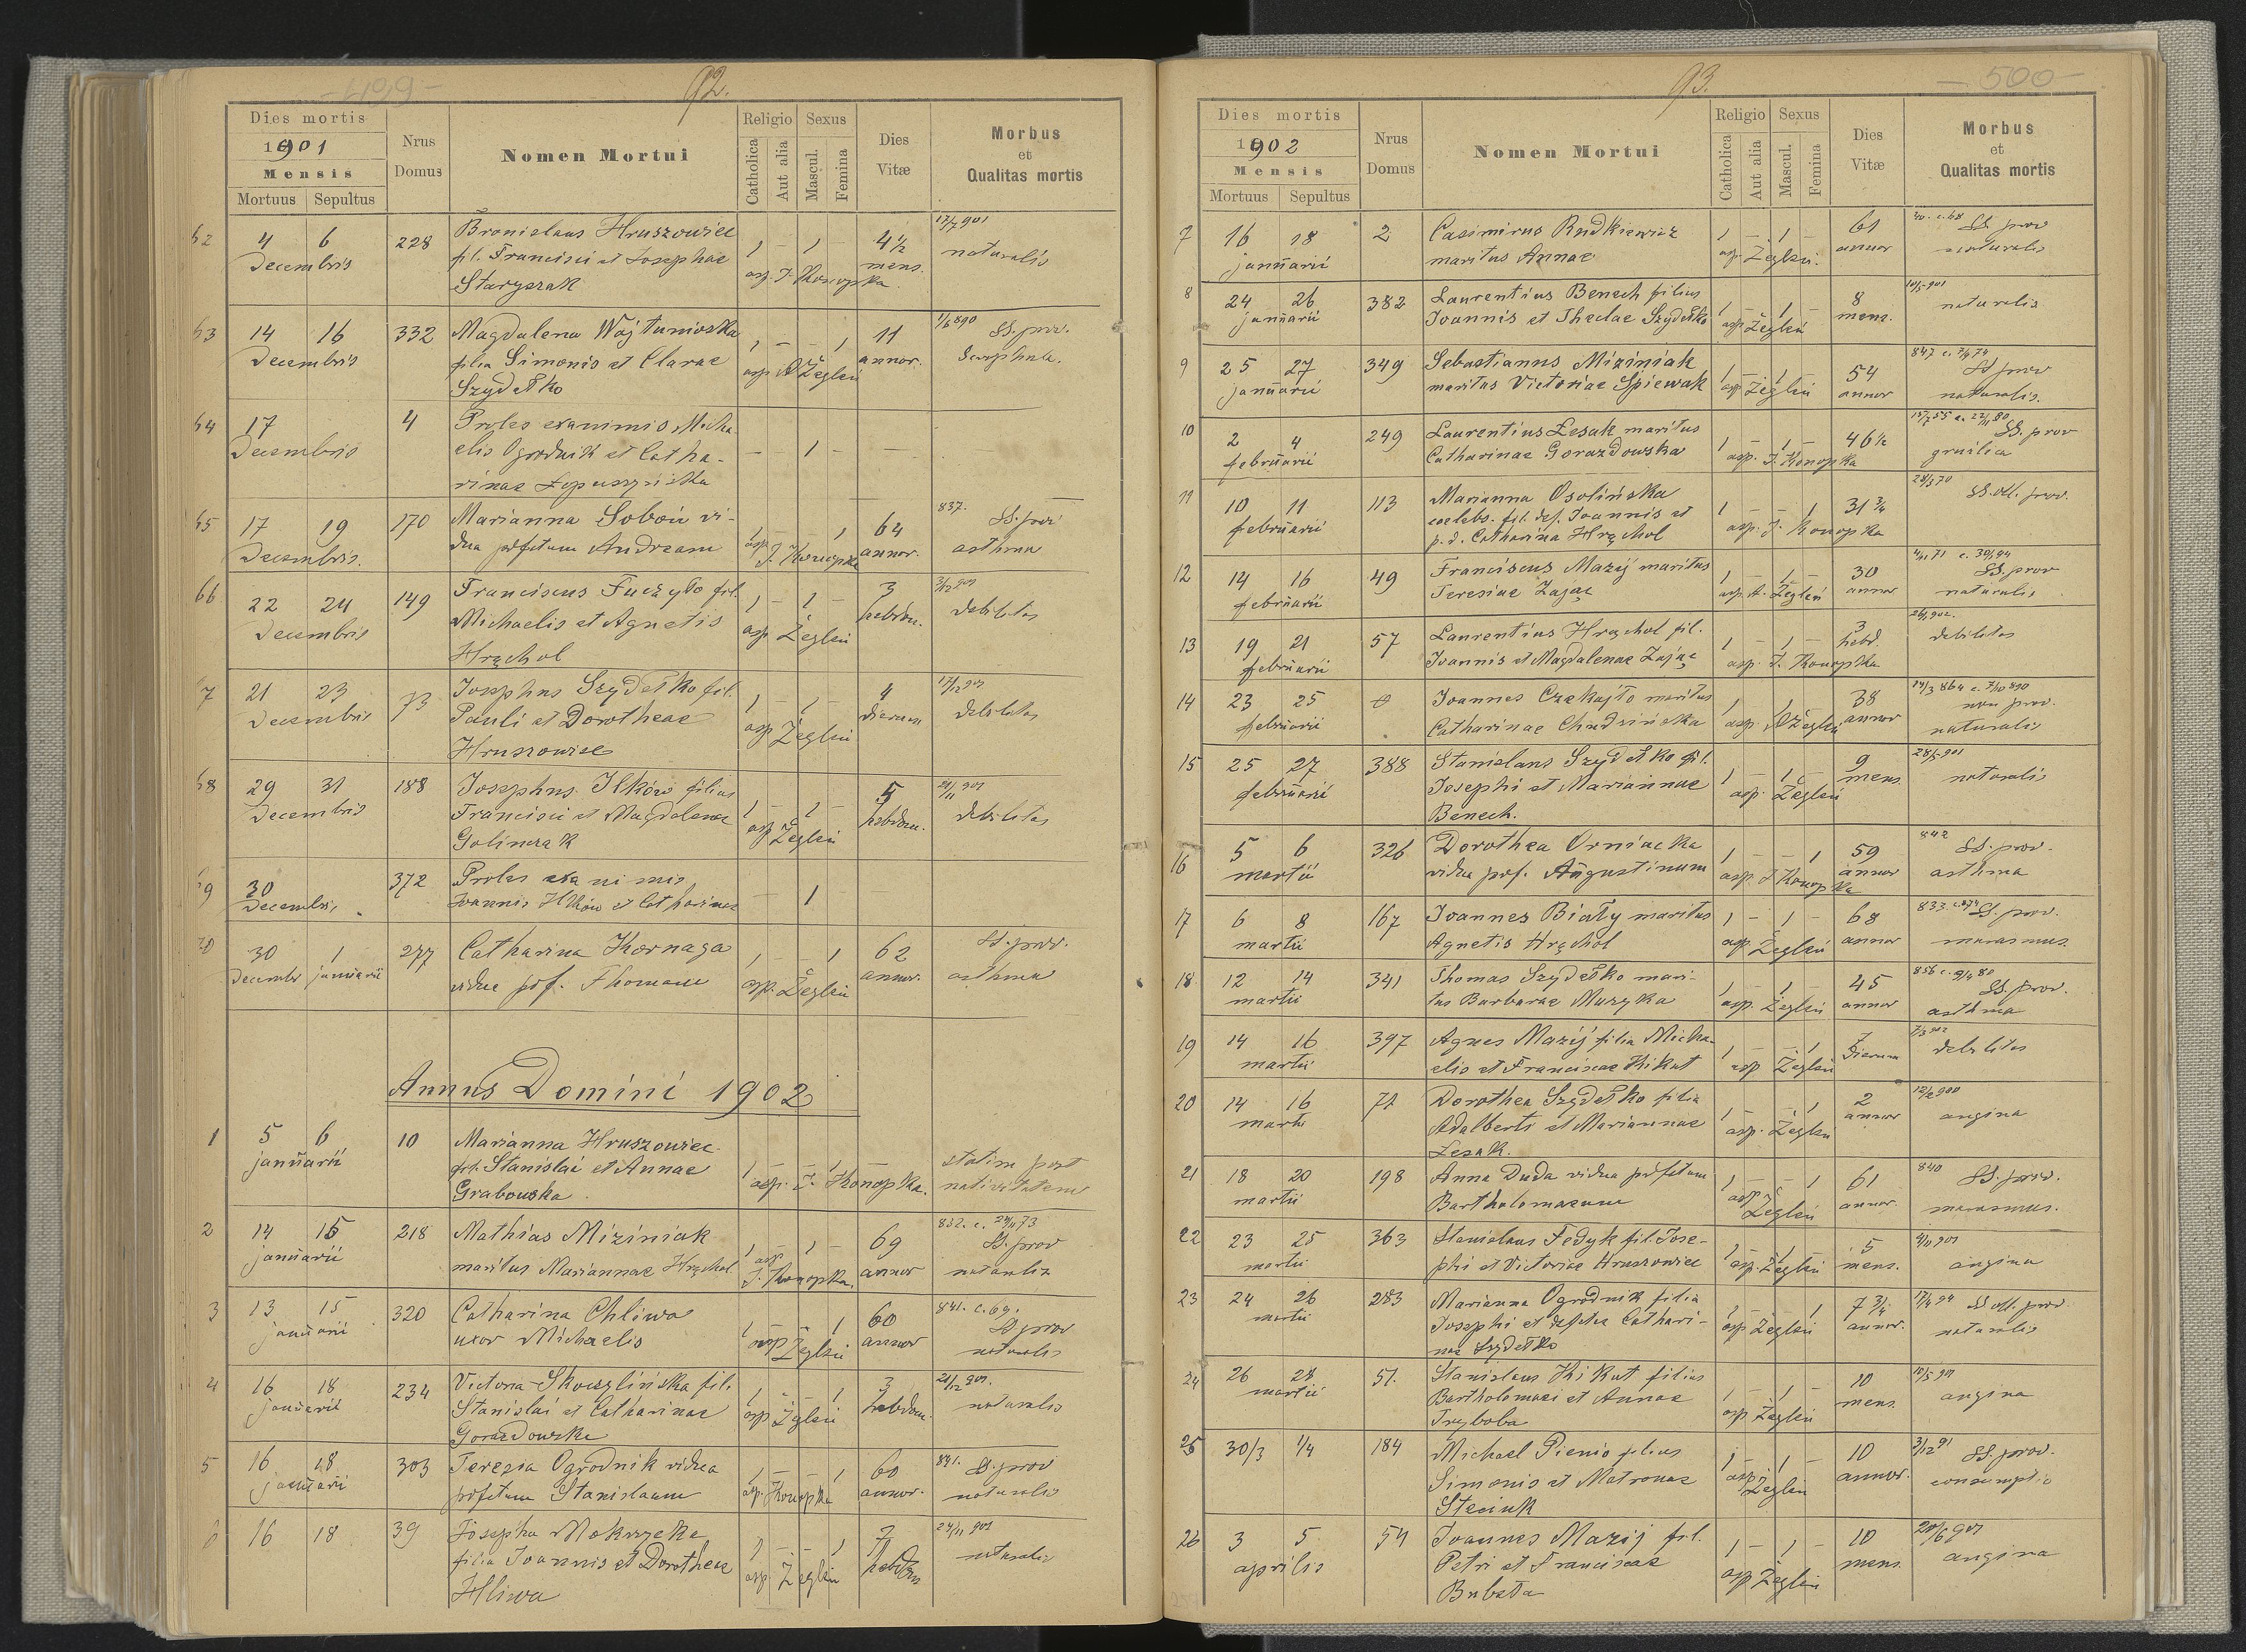 - 499 -
92.
Dies mortis
1901
Mensis
Mortuus Sepultus
Nrus Domus
Nomen Mortui
Religio
Catholica
Aut alia
Sexus
Mascul.
Femina
Dies Vitæ
Morbus
et
Qualitas mortis
4 6 228 Bronislaus Hruszowiec 1 - 1 - 4½ 17/7 901
Decembris fil. Francisci et Josephae asp. J. Konopka mens. naturalis
Staryszak
63 14 16 332 Magdalena Wojtunioska 1 - - 1 11 SS. prov.
Decembris filia Simonis et Clarae asp A Żegleń annor.
Szydełko
64 17 4 Proles exanimis Micha-
Decembris elis Ogrodnik et Catha- - - 1 - -
rinae Łopuszyńska
65 17 19 170 Marianna Soboń vi- 1 64 837. SS. prov
Decembris. dua p. defctum Andream asp. J. Konopka annor. asthma
66 22 24 149 Franciscus Fuczyło fil. 1 - 1 - 3 3/12 901
Decembris Michaelis et Agnetis asp. Żegleń hebdom. debilitas
Hrychol
67 21 23 73 Josephus Szydełko fil. 1 - 1 - 4 17/12 901
Decembris Pauli et Dorotheae asp Żegleń dierum debilitas
Hruszowiec
68 29 31 188 Josephus Ilków filius 1 - 1 - 5 21/11 901
Decembris Francisci et Magdalenae asp Żegleń hebdom. debilitas
Golimzak
69 30 372 Proles exanimis
Decembris Joannis Ilków et Catharinae - 1
70 30 1 277 Catharina Kornaga 1 - - 1 62 SS. prov.
Decembr januarii vidua p. def. Thomam asp. Żegleń annor. asthma
Annus Domini 1902
1 5 6 10 Marianna Hruszowiec
januarii fil. Stanislai et Annae asp. J. Konopka. statim post
Grabowska nativitatem
2 14 15 218 Mathias Miziniak 1 - 1 - 69 832. c. 24/11 73 SS. prov
januarii maritus Mariannae Hrychol asp J. Konopka. annor naturalis
3 13 15 320 Catharina Chliwa 1 60 841. c. 69. SS. prov
januarii uxor Michaelis asp Żegleń annor naturalis
4 16 18 234 Victoria Skoczylińska fil. 1 - - 1 3 21/12 901.
januarii Stanislai et Catharinae asp Żegleń hebdom. naturalis
Gorazdowska
5 16 18 303 Terezia Ogrodnik vidua 1 - - 1 60 841. SS. prov
januarii p. defctum Stanislaum asp. Konopka annor. naturalis
6 16 18 39 Josepha Mokrzycka 1 - - 1 7 24/11 901
filia Joannis et Dorotheae asp Żegleń hebdom naturalis
Hliwa
- 500 -
93.
Dies mortis
1902
Mensis
Mortuus Sepultus
Nrus Domus
Nomen Mortui
Religio
Catholica
Aut alia
Sexus
Mascul.
Femina
Dies Vitæ
Morbus
et
Qualitas mortis
7 16 18 2 Casimirus Rudkiewicz 1 - 1 - 61 SS prov
januarii maritus Annae asp. Żegleń. annor naturalis
8 24 26 382 Laurentius Benech filius 1 - 1 - 8 10/5 901
januarii Joannis et Theclae Szydełko asp Żegleń mens. naturalis
9 25 27 349 Sebastianus Miziniak 1 - 1 - 54 SS prov
januarii maritus Victoriae Śpiewak asp Żegleń annor naturalis.
10 2 4 249 Laurentius Łesak maritus 1 - 1 - 46½ SS. prov
februarii Catharinae Gorazdowska asp. J. Konopka gruźlica
11 10 11 113 Marianna Osolińska 1 - - 1 31¾ SS. oll. prov.
februarii coelebs. fil. def. Joannis et asp. J. Konopka
p. d. Catharina Hrychol
12 14 16 49 Franciscus Mazij maritus 1 - 1 - 30 SS. prov
februarii Teresiae Zając asp A. Żegleń annor naturalis
13 19 21 57 Laurentius Hrychol fil. 1 - 1 - 3 hebd. 26/1 902.
februarii Joannis et Magdalenae Zając asp. J. Konopka debilitas
14 23 25 Joannes Czekajło maritus 1 - 1 - 38 14/3 864 c. 7/10 890
februarii Catharinae Chudzińska asp. A Żegleń annor non prov.
naturalis
15 25 27 388 Stanislaus Szydełko fil. 1 - 1 - 9 28/5 901
februarii Josephi et Mariannae asp. Żegleń mens. naturalis
Benech.
16 5 6 326 Dorothea Orniacka 1 - - 1 59 842 SS. prov.
martii vidua p. def. Augustinum asp. J. Konopka annor asthma
17 6 8 167 Joannes Biały maritus 1 - 1 - 68 833. SS. prov.
martii Agnetis Hrychol asp Żegleń annor marasmus.
18 12 14 341 Thomas Szydełko mari- 1 - 1 - 45 SS. prov.
martii tus Barbarae Muzyka asp. Żegleń annor asthma
19 14 16 397 Agnes Mazij filia Micha- 1 - - 1 7 7/3 902
martii elis et Franciscae Kikut asp Żegleń dierum debilitas
20 14 16 72 Dorothea Szydełko filia 1 - - 1 2 12/2 900
martii Adalberti et Mariannae asp. Żegleń annor angina
Łesak.
21 18 20 198 Anna Duda vidua p. defctum 1 - - 1 61 840 SS. prov.
martii Bartholomaeum asp Żegleń annor. marasmus.
22 23 25 363 Stanislaus Fedyk fil. Jose- 1 - 1 - 5 901
martii phi et Victoriae Hruszowiec asp. Żegleń mens. angina
23 24 26 283 Marianna Ogrodnik filia 1 - - 1 7¾ SS oll. prov.
martii Josephi et defctae Cathari- asp Żegleń annor. naturalis
nae Szydełko
24 26 28 51. Stanislaus Kikut filius 1 - 1 - 10 10/5 901
martii Bartholomaei et Annae asp Żegleń mens. angina
Tryboba
25 30/3 1/4 184 Michael Pienio filius 1 - 1 - 10 3/12 91 SS. prov.
Simonis et Matronae asp Żegleń annor. consumptio
Steciuk
26 3 5 54 Joannes Mazij fil. 1 - 1 - 10 20/6 901
aprilis Petri et Franciscae asp Żegleń mens. angina
Bubeła